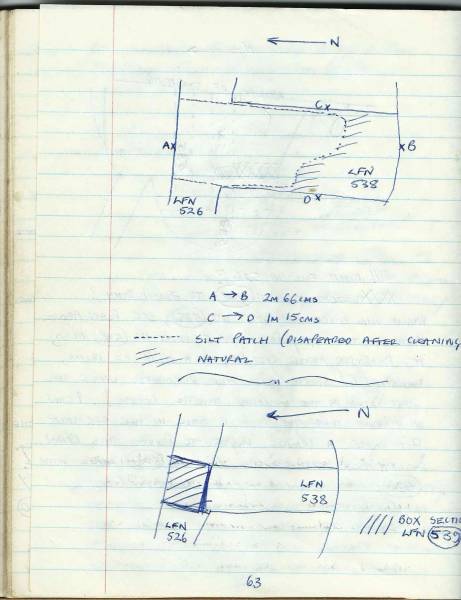 N
C x
A x
x B
LFN
538
LFN
526
D x
A → B 2M 66CMS
C → D 1M 15CMS
SILT PATCH (DISAPEARED AFTER CLEANING
NATURAL
N
LFN
538
LFN
526
BOX SECTI
LFN 539
63